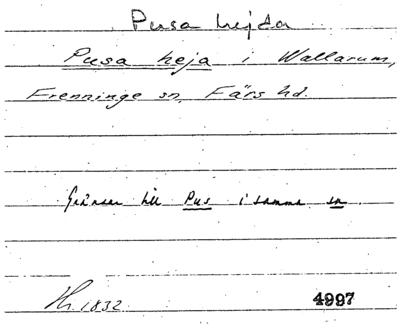 Pusa hejda
Pusa heja i Wallarum,
Frenninge sn, Färs hd.
Gränsar till Pus i samma sn.
1832
4997